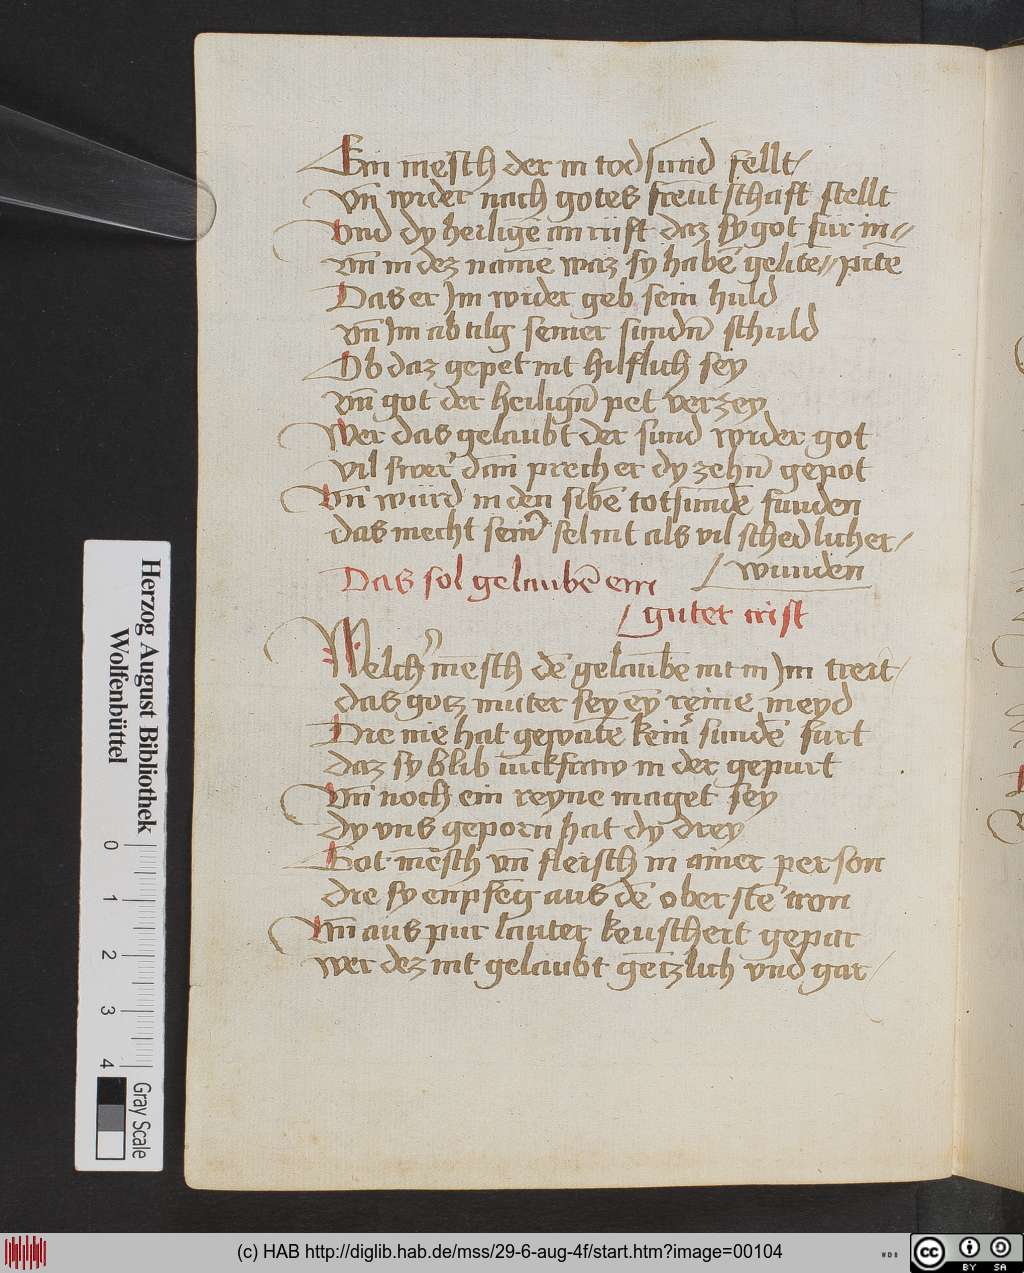 Ein mēsch der in tod sund fellt
vn̄ wider nach gotes freutschaft stellt
Vnd dy heilige an rüft daz sy got für in
vm̄ in dez name waz sy habē gelite // pite
Das er Im wider geb sein huld
vn̄ Im ab tilg seiner sundn̄ schuld
Ob daz gepet nit hilflich sey
vm̄ got der heilign̄ pet verzey
Wer das gelaubt der sund wider got
vil swer dan̄ prech er dy zehn̄ gepot
Vn̄ würd in den sibē totsundē funden
das mecht seinr sel nit als vil schedlicher
wunden
Das sol gelaubē ein
guter crist
Welchr mēsch dē gelaubē nit in Im treit
das gotz muter sey ey reine meyd
Die nie hat gepate keinr sundē furt
daz sy blib iuckfraw in der gepurt
Vn̄ noch ein reyne maget sey
dy vns geporn hat dy drey
Got mēsch vn̄ fleisch in ainer person
die sy enpfeng aus dē oberstē tron
Vn̄ aus pur lauter keuscheit gepar
wer dez nit gelaubt gētzlich vnd gar
Herzog August Bibliothek
Wolfenbüttel
0 1 2 3 4
Gray Scale
(c) HAB http://diglib.hab.de/mss/29-6-aug-4f/start.htm?image=00104
WDB
cc BY SA